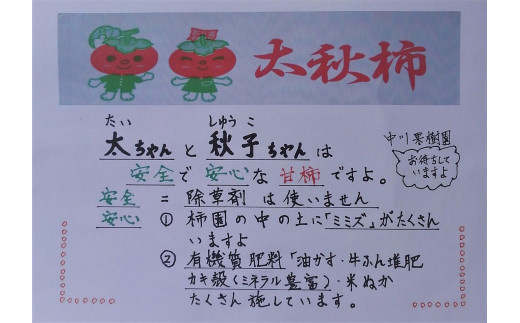 太秋柿
たい しゅうこ
太ちゃんと秋子ちゃんは
中川果樹園
お待ちして
いますよ
安全で安心な甘柿ですよ。
安全 = 除草剤は使いません
安心 ① 柿園の中の土に「ミミズ」がたくさん
いますよ
② 有機質肥料「油かす・牛ふん堆肥
カキ殻(ミネラル豊富)・米ぬか
たくさん施しています。